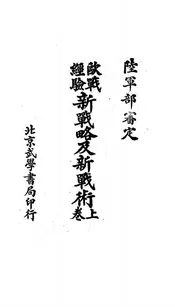 陸軍部審定
歐戰經驗新戰略及新戰術上卷
北京武學書局印行